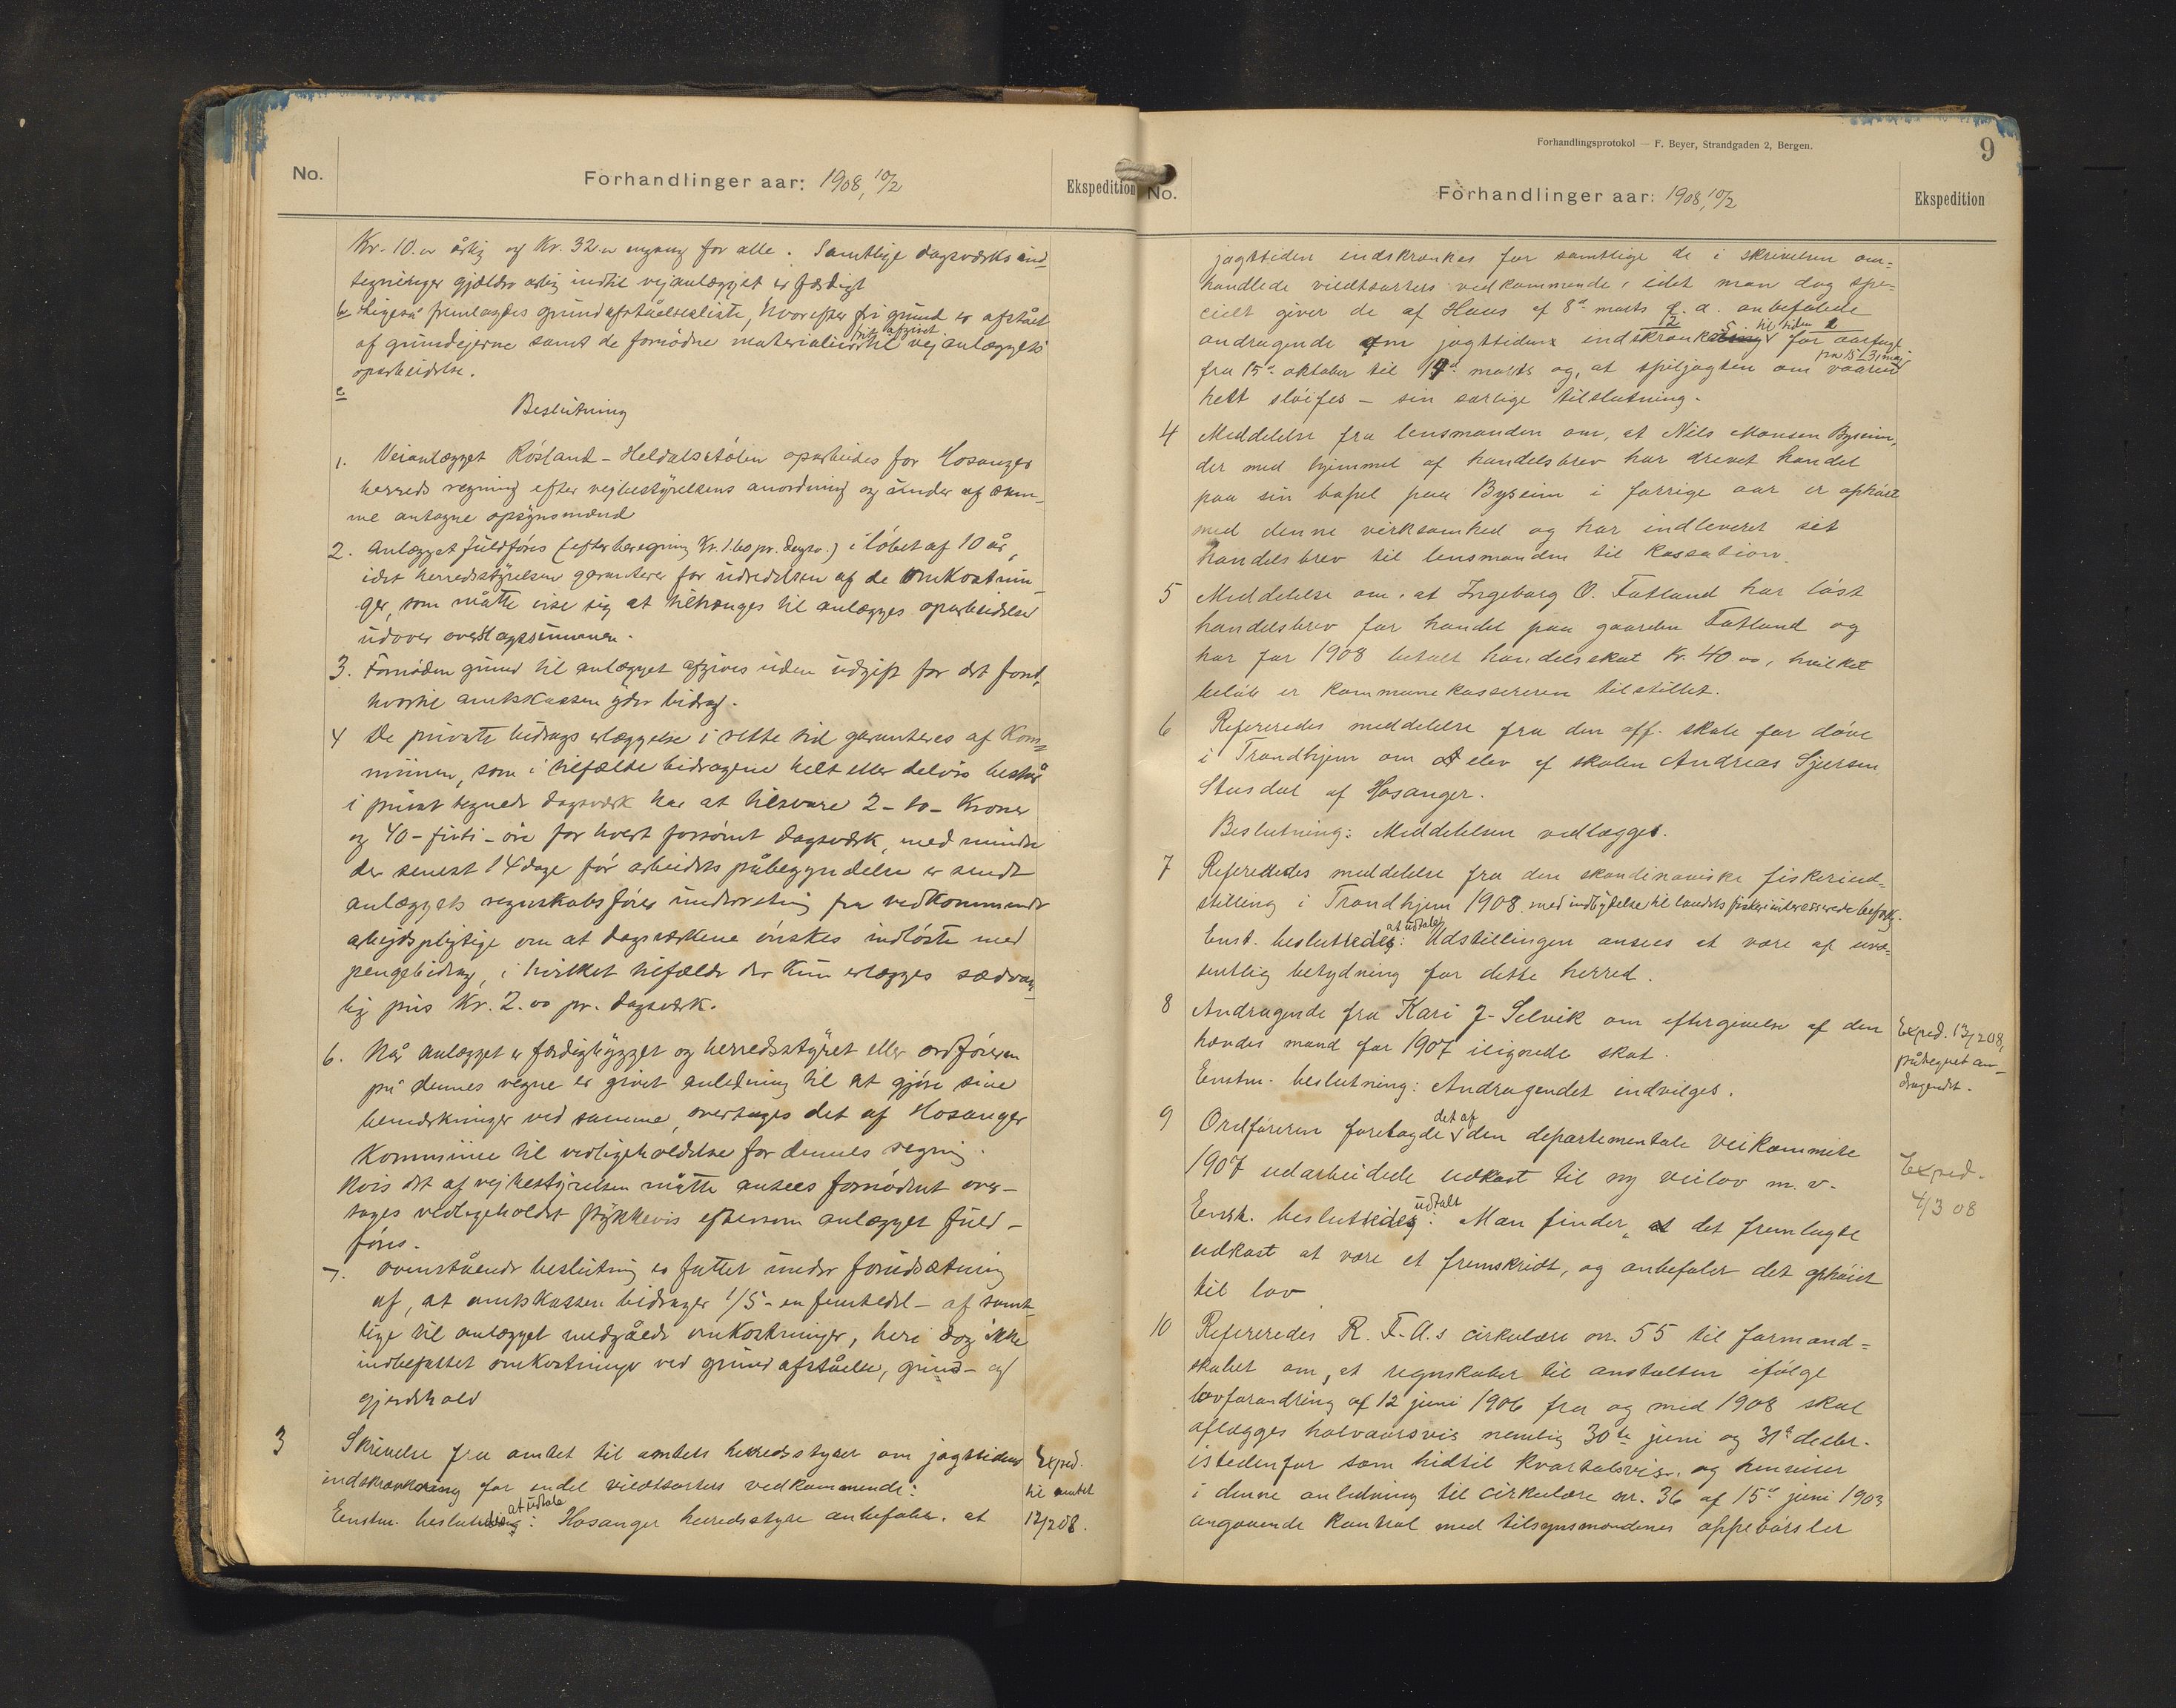 No.
Forhandlinger aar: 1908, 10/2
Ekspedition
Kr. 10.00 årlig og Kr. 32.00 engang for alle. Samtlige dagsværks ind-
tegninger gjælder årlig indtil vejanlægget er færdigt
b Ligeså fremlagdes grundafståelsesliste, hvorefter fri grund er afstået
af grundejerne samt de fornødne materialier frit afgivet til vejanlæggets
oparbeidelse.
c
Beslutning
1. Veianlægget Røsland - Heldalsstølen oparbeides for Hosanger
herreds regning efter vejbestyrelsens anordning og under af sam-
me antagne opsynsmænd
2. Anlægget fuldføres (efter beregning Kr. 1.60 pr. dagsv.) i løbet af 10 år,
idet herredsstyrelsen garanterer for udredelsen af de omkostnin-
ger, som måtte vise sig at tiltrænges til anlægges oparbeidelse
udover overslagssummen.
3. Fornøden grund til anlægget afgives uden udgift for det fond,
hvortil amtskassen yder bidrag.
4 De private bidrags erlæggelse i rette tid garanteres af Kom-
munen, som i tilfælde bidragene helt eller delvis består
i privat tegnede dagsværk har at tilsvare 2 - to - Kroner
og 40 - firti - øre for hvert forsømt dagsværk, med mindre
der senest 14 dage før arbeidets påbegyndelse er sendt
anlæggets regnskabsfører underretning fra vedkommende
arbejdspligtige om at dagsværkene ønskes indløste med
pengebidrag, i hvilket tilfælde der kun erlægges sædvan-
lig pris Kr. 2.00 pr. dagsværk.
6. Når anlægget er færdigbygget og herredsstyret eller ordføreren
på dennes vegne er givet anledning til at gjøre sine
bemærkninger ved samme, overtages det af Hosanger
Kommune til vedligeholdelse for dennes regning.
Hvis det af vejbestyrelsen måtte ansees fornødent over-
tages vedligeholdet stykkevis eftersom anlægget fuld-
føres.
7. Ovenstående beslutning er fattet under forudsætning
af, at amtskassen bidrager 1/5 - en femtedel - af samt-
lige til anlægget medgåede omkostninger, heri dog ikke
indbefattet omkostninger ved grundafståelse, grind- og
gjerdehold
3 Skrivelse fra amtet til amtets herredsstyrer om jagttidens
indskrænkning for endel vildtsorters vedkommende:
Enstm. besluttedes at udtale: Hosanger herredsstyre anbefaler, at
Exped.
til amtet
12/2 08.
Forhandlingsprotokol — F. Beyer, Strandgaden 2, Bergen.
9
No.
Forhandlinger aar: 1908, 10/2
Ekspedition
jagttiden indskrænkes for samtlige de i skrivelsen om-
handlede vildtsorters vedkommende, idet man dog spe-
cielt giver de af Haus af 8de marts f. a. anbefalede
andragende om jagttiden indskrænkes til tiden for aarfugl
fra 15de oktober til marts og, at spiljagten om vaaren fra 15/3, maj
helt sløifes - sin særlige tilslutning.
4 Meddelelse fra lensmanden om, at Nils Monsen Byseim,
der med hjemmel af handelsbrev har drevet handel
paa sin bopel paa Byseim i forrige aar er ophørt
med denne virksomhed og har indleveret sit
handelsbrev til lensmanden til kassation.
5 Meddelelse om, at Ingeborg O. Fatland har løst
handelsbrev for handel paa gaarden Fatland og
har for 1908 betalt handelsskat Kr. 40.00, hvilket
beløb er kommunekassereren tilstillet.
6 Refereredes meddelelse fra den off. skole for døve
i Trondhjem om at elev af skolen Andreas Sjursen
Stusdal af Hosanger.
Beslutning: Meddelelsen vedlægges.
7 Refereredes meddelelse fra den skandinaviske fiskeriud-
stilling i Trondhjem 1908 med indbydelse til landets fiskeriinteresserede befolk.
Enst. besluttedes at udtale: Udstillingen ansees at være af uvæ-
sentlig betydning for dette herred.
8 Andragende fra Kari J. Selvik om eftergivelse af den
hendes mand for 1907 ilignede skat.
Enstm. beslutning: Andragendet indvilges.
Exped. 13/2 08,
påtegnet an-
dragendet.
9 Ordføreren foretagde det af den departementale veikommite
1907 udarbeidede udkast til ny veilov m.v.
Enst. besluttedes udtalt: Man finder, at det fremlagte
udkast at være et fremskridt, og anbefaler det ophøiet
til lov
Exped.
4/3 08
10 Refereredes R. F. A.s cirkulære nr. 55 til formand-
skabet om, at regnskaber til anstalten ifølge
lovforandring af 12 juni 1906 fra og med 1908 skal
aflægges halvaarsvis nemlig 30te juni og 31te decbr.
istedenfor som hidtil kvartalsvis, og henviser
i denne anledning til cirkulære nr. 36 af 15de juni 1903
angaaende kontrol med tilsynsmændenes oppebørsler